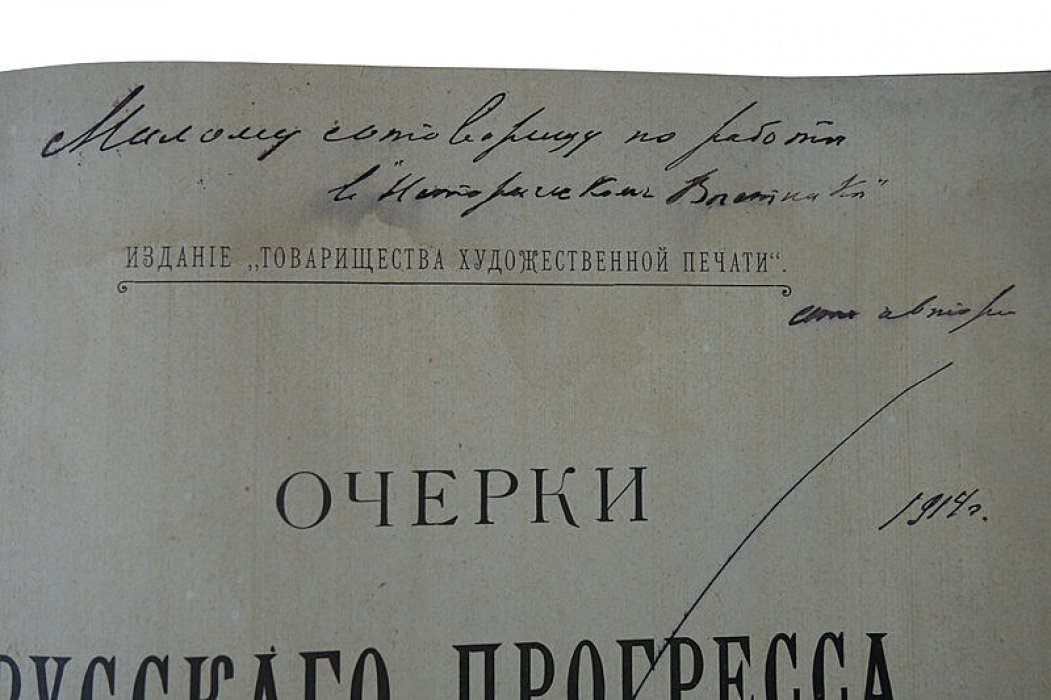 Милому сотоварищу по работѣ
въ "Историческомъ Вѣстникѣ"
ИЗДАНІЕ „ТОВАРИЩЕСТВА ХУДОЖЕСТВЕННОЙ ПЕЧАТИ“.
отъ автора
ОЧЕРКИ
1914г.
РУССКАГО ПРОГРЕССА